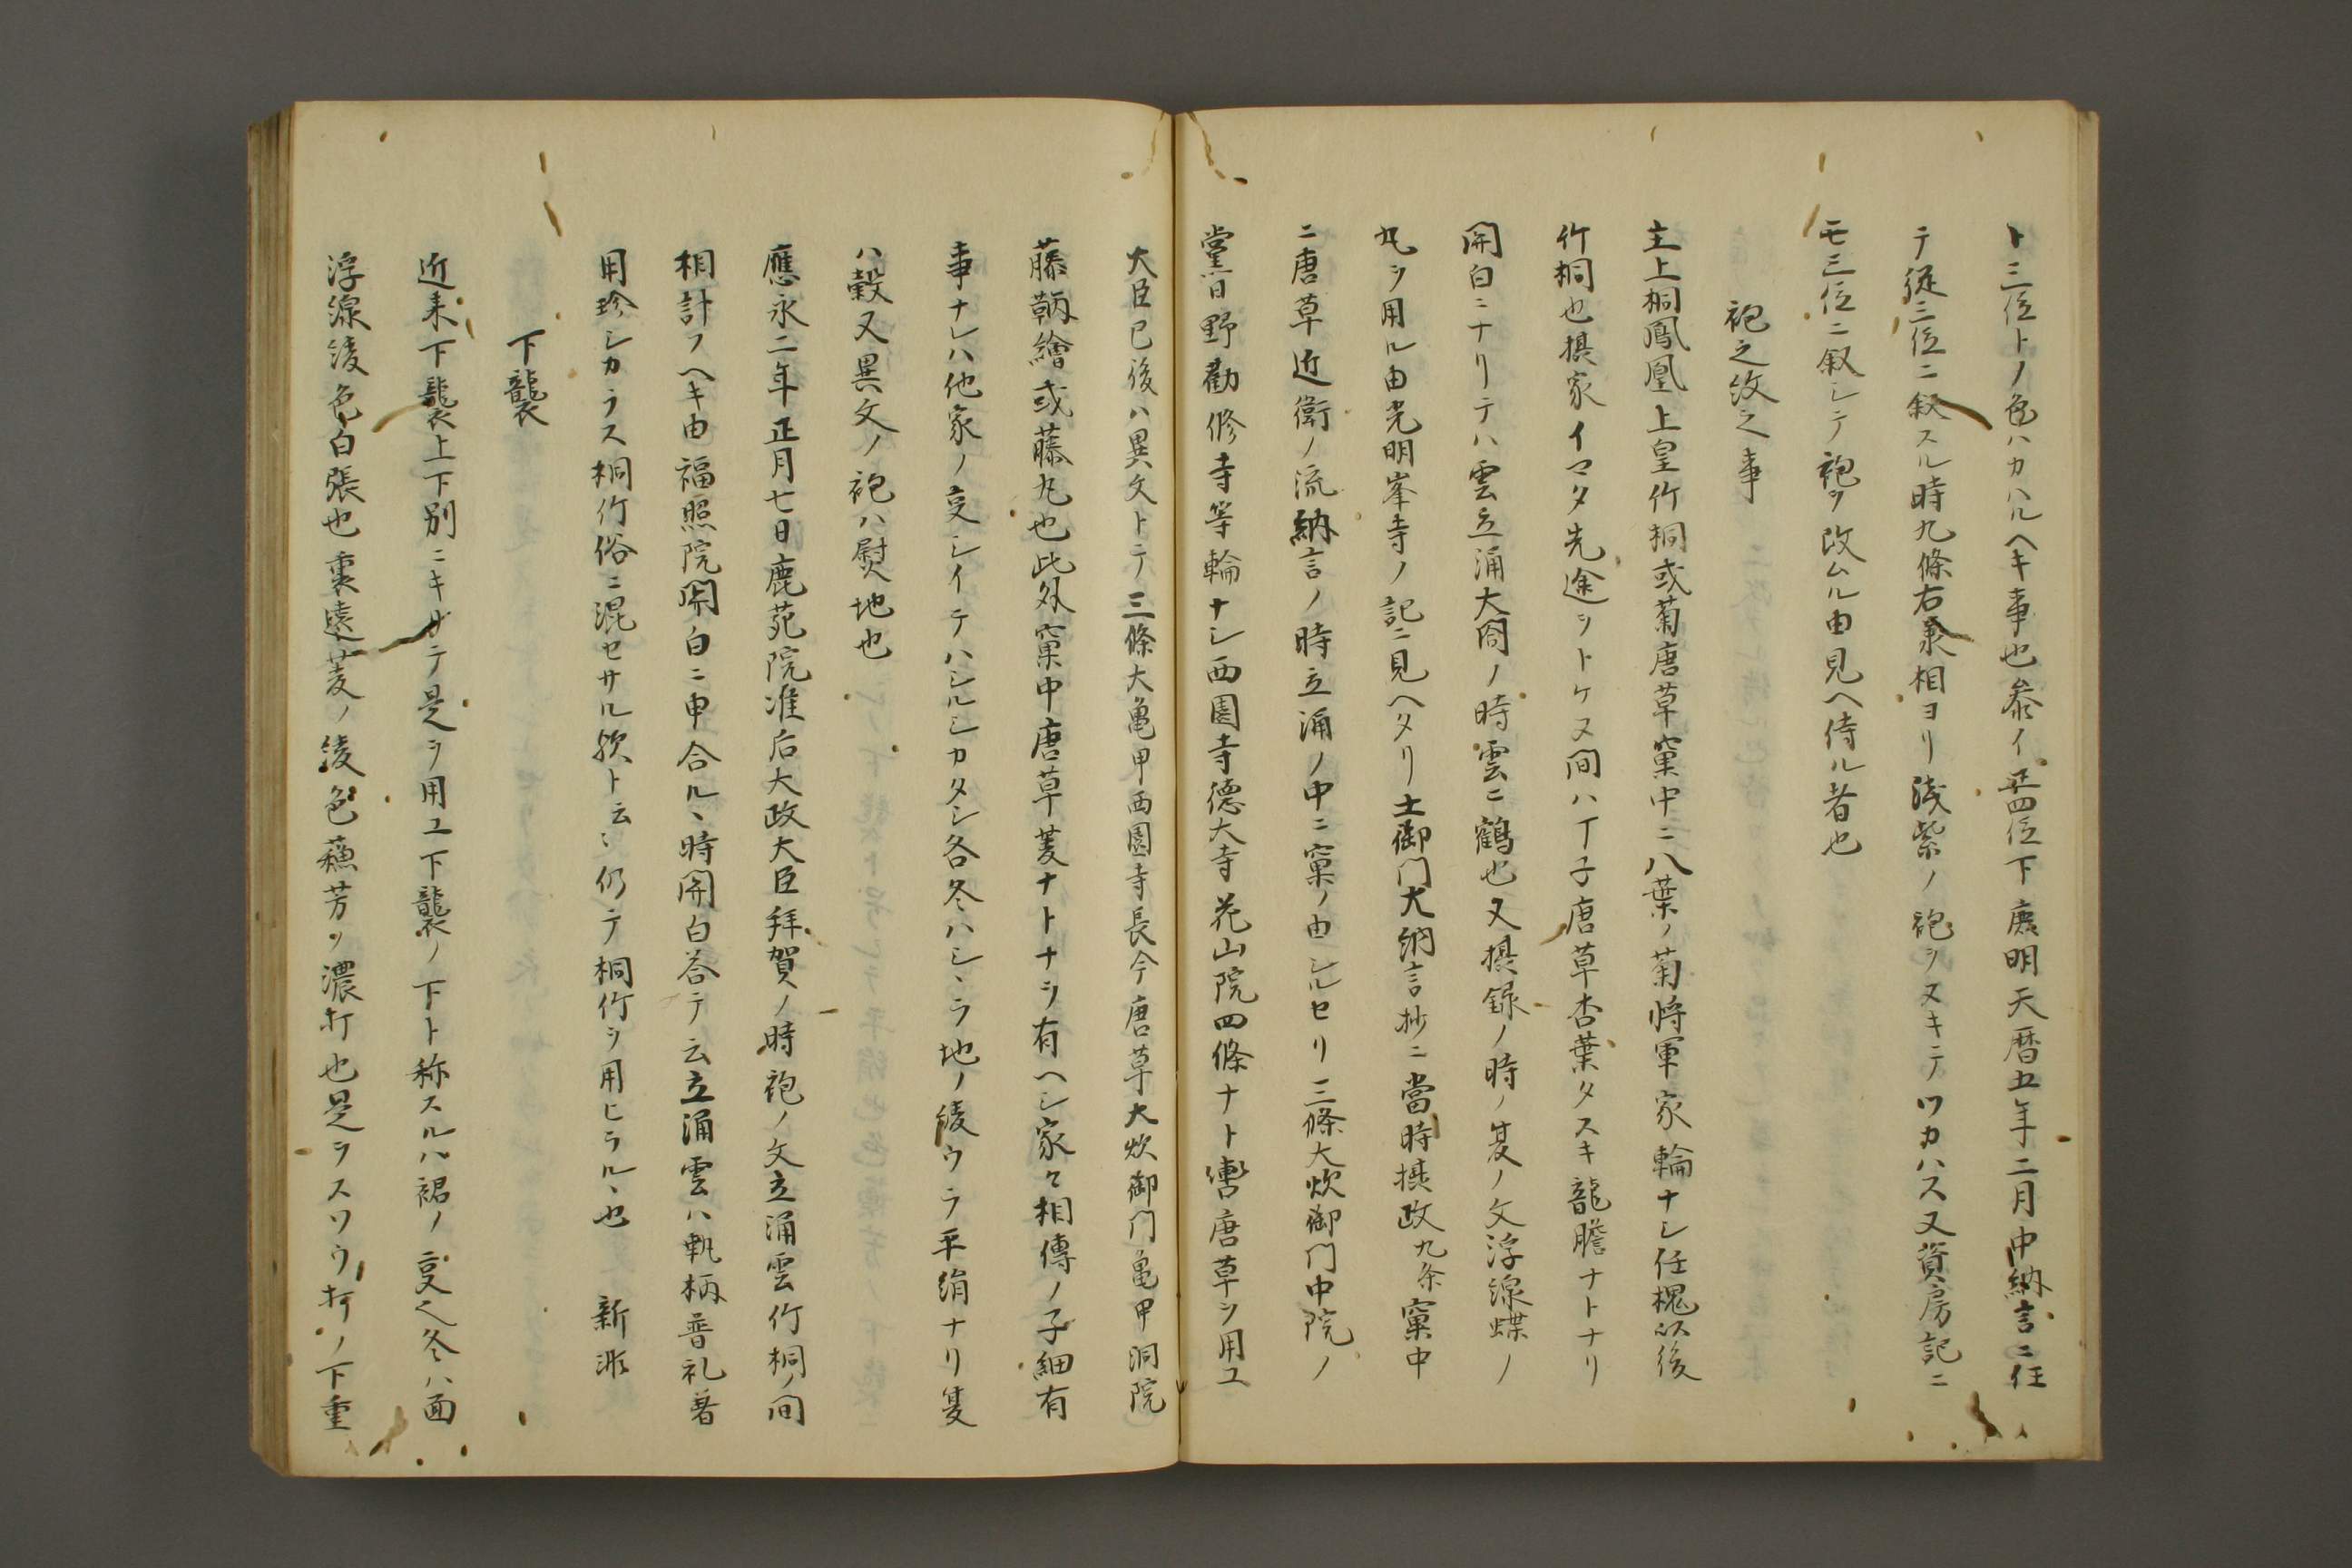 ト三位トノ色ハカハルヘキ事也叅イ正四位下庻明天暦五年二月中納言ニ任
テ從三位ニ叙スル時九條右丞相ヨリ淺紫ノ袍ヲヌキテツカハス又資房記ニ
モ三位ニ叙シテ袍ヲ改ムル由見ヘ侍ル者也
袍之紋之事
主上桐鳳凰上皇竹桐或菊唐草窠中ニ八葉ノ菊將軍家輪ナシ任槐以後
竹桐也摂家イマタ先途ヲトケヌ間ハ丁子唐草杏葉タスキ龍膽ナトナリ
関白ニナリテハ雲立涌大閤ノ時雲ニ鶴也又摂録ノ時ノ夏ノ文浮線蝶ノ
丸ヲ用ル由光明峯寺ノ記ニ見ヘタリ土御門大納言抄ニ當時摂政九条窠中
ニ唐草近衛ノ流納言ノ時立涌ノ中ニ窠ノ由シルセリ三條大炊御門中院ノ
黨日野勸修寺等輪ナシ西園寺德大寺花山院四條ナト轡唐草ヲ用ユ
大臣已後ハ異文トテ三條大亀甲西園寺長今唐草大炊御門亀甲洞院
藤鞆繪或藤丸也此外窠中唐草菱ナトナヲ有ヘシ家々相傳ノ子細有
事ナレハ他家ノ㕝シイテハシルシカタシ各冬ハシヽラ地ノ綾ウラ平絹ナリ夏
ハ縠又異文ノ袍ハ熨地也
應永二年正月七日鹿苑院准后大政大臣拜賀ノ時袍ノ文立涌雲竹桐ノ間
相計フヘキ由福照院関白ニ申合ルヽ時関白荅テ云立涌雲ハ執柄普礼着
用珍シカラス桐竹俗ニ混セサル歟ト云々仍テ桐竹ヲ用ヒラルヽ也 新漎
下襲
近来下襲上下別ニキサテ是ヲ用ユ下襲ノ下ト称スルハ裾ノ㕝也冬ハ面
浮線綾色白張也裏遠菱ノ綾色蘓芳ノ濃打也是ヲスワウ打ノ下重